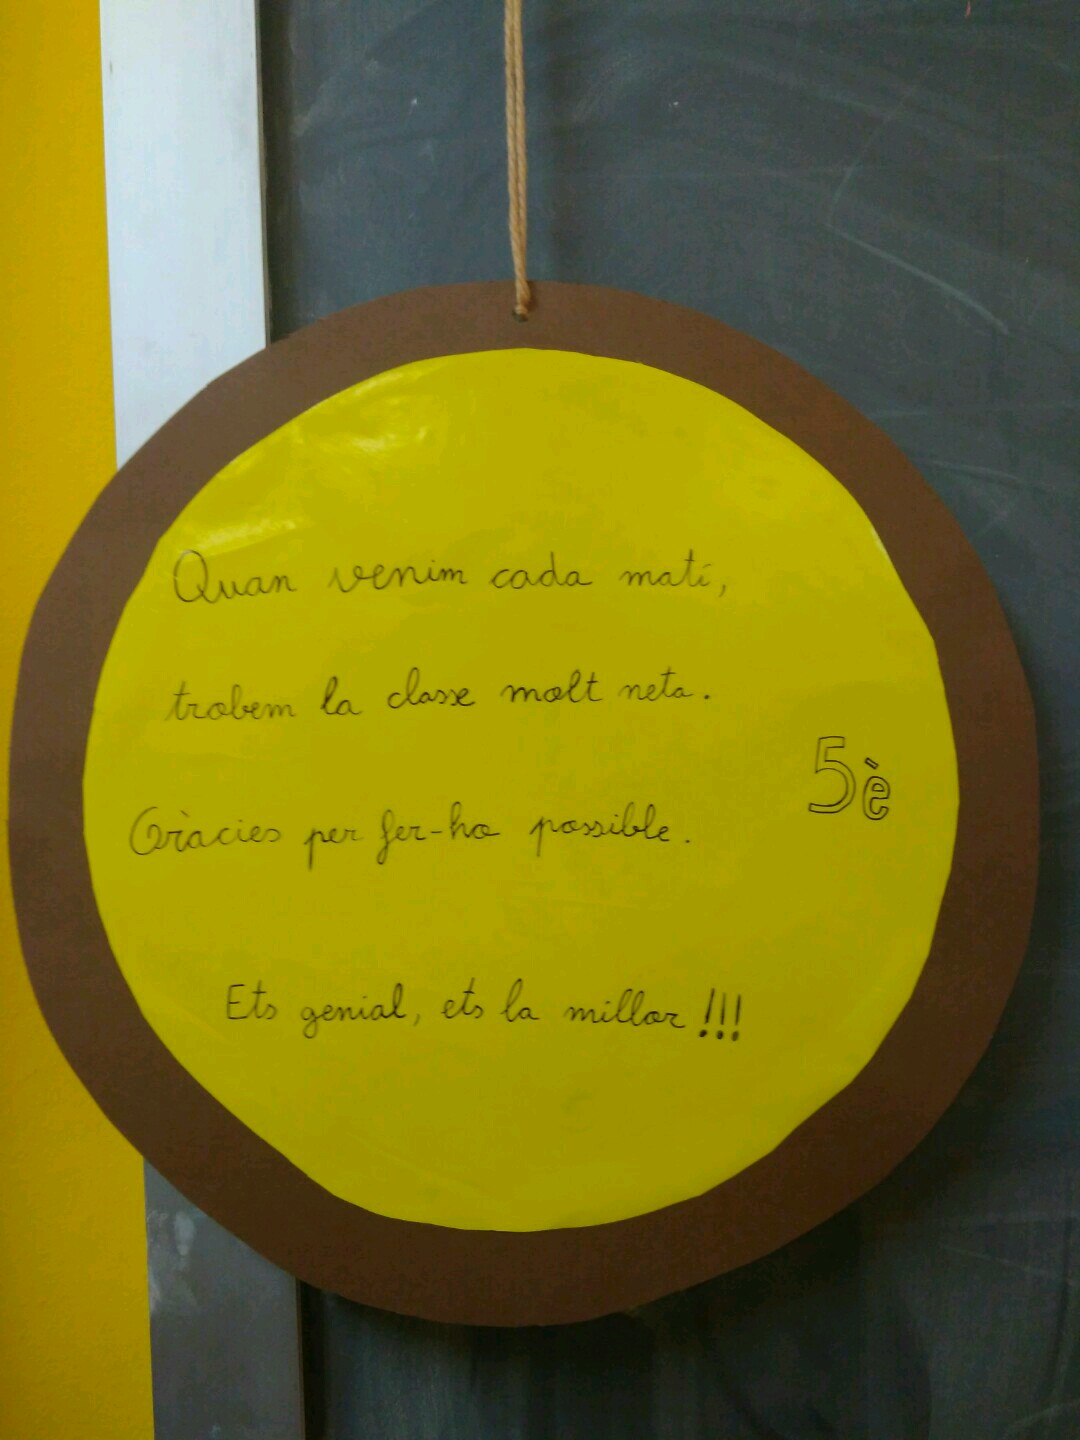 Quan venim cada matí,
trobem la classe molt neta.
Gràcies per fer-ho possible.
5è
Ets genial, ets la millor!!!